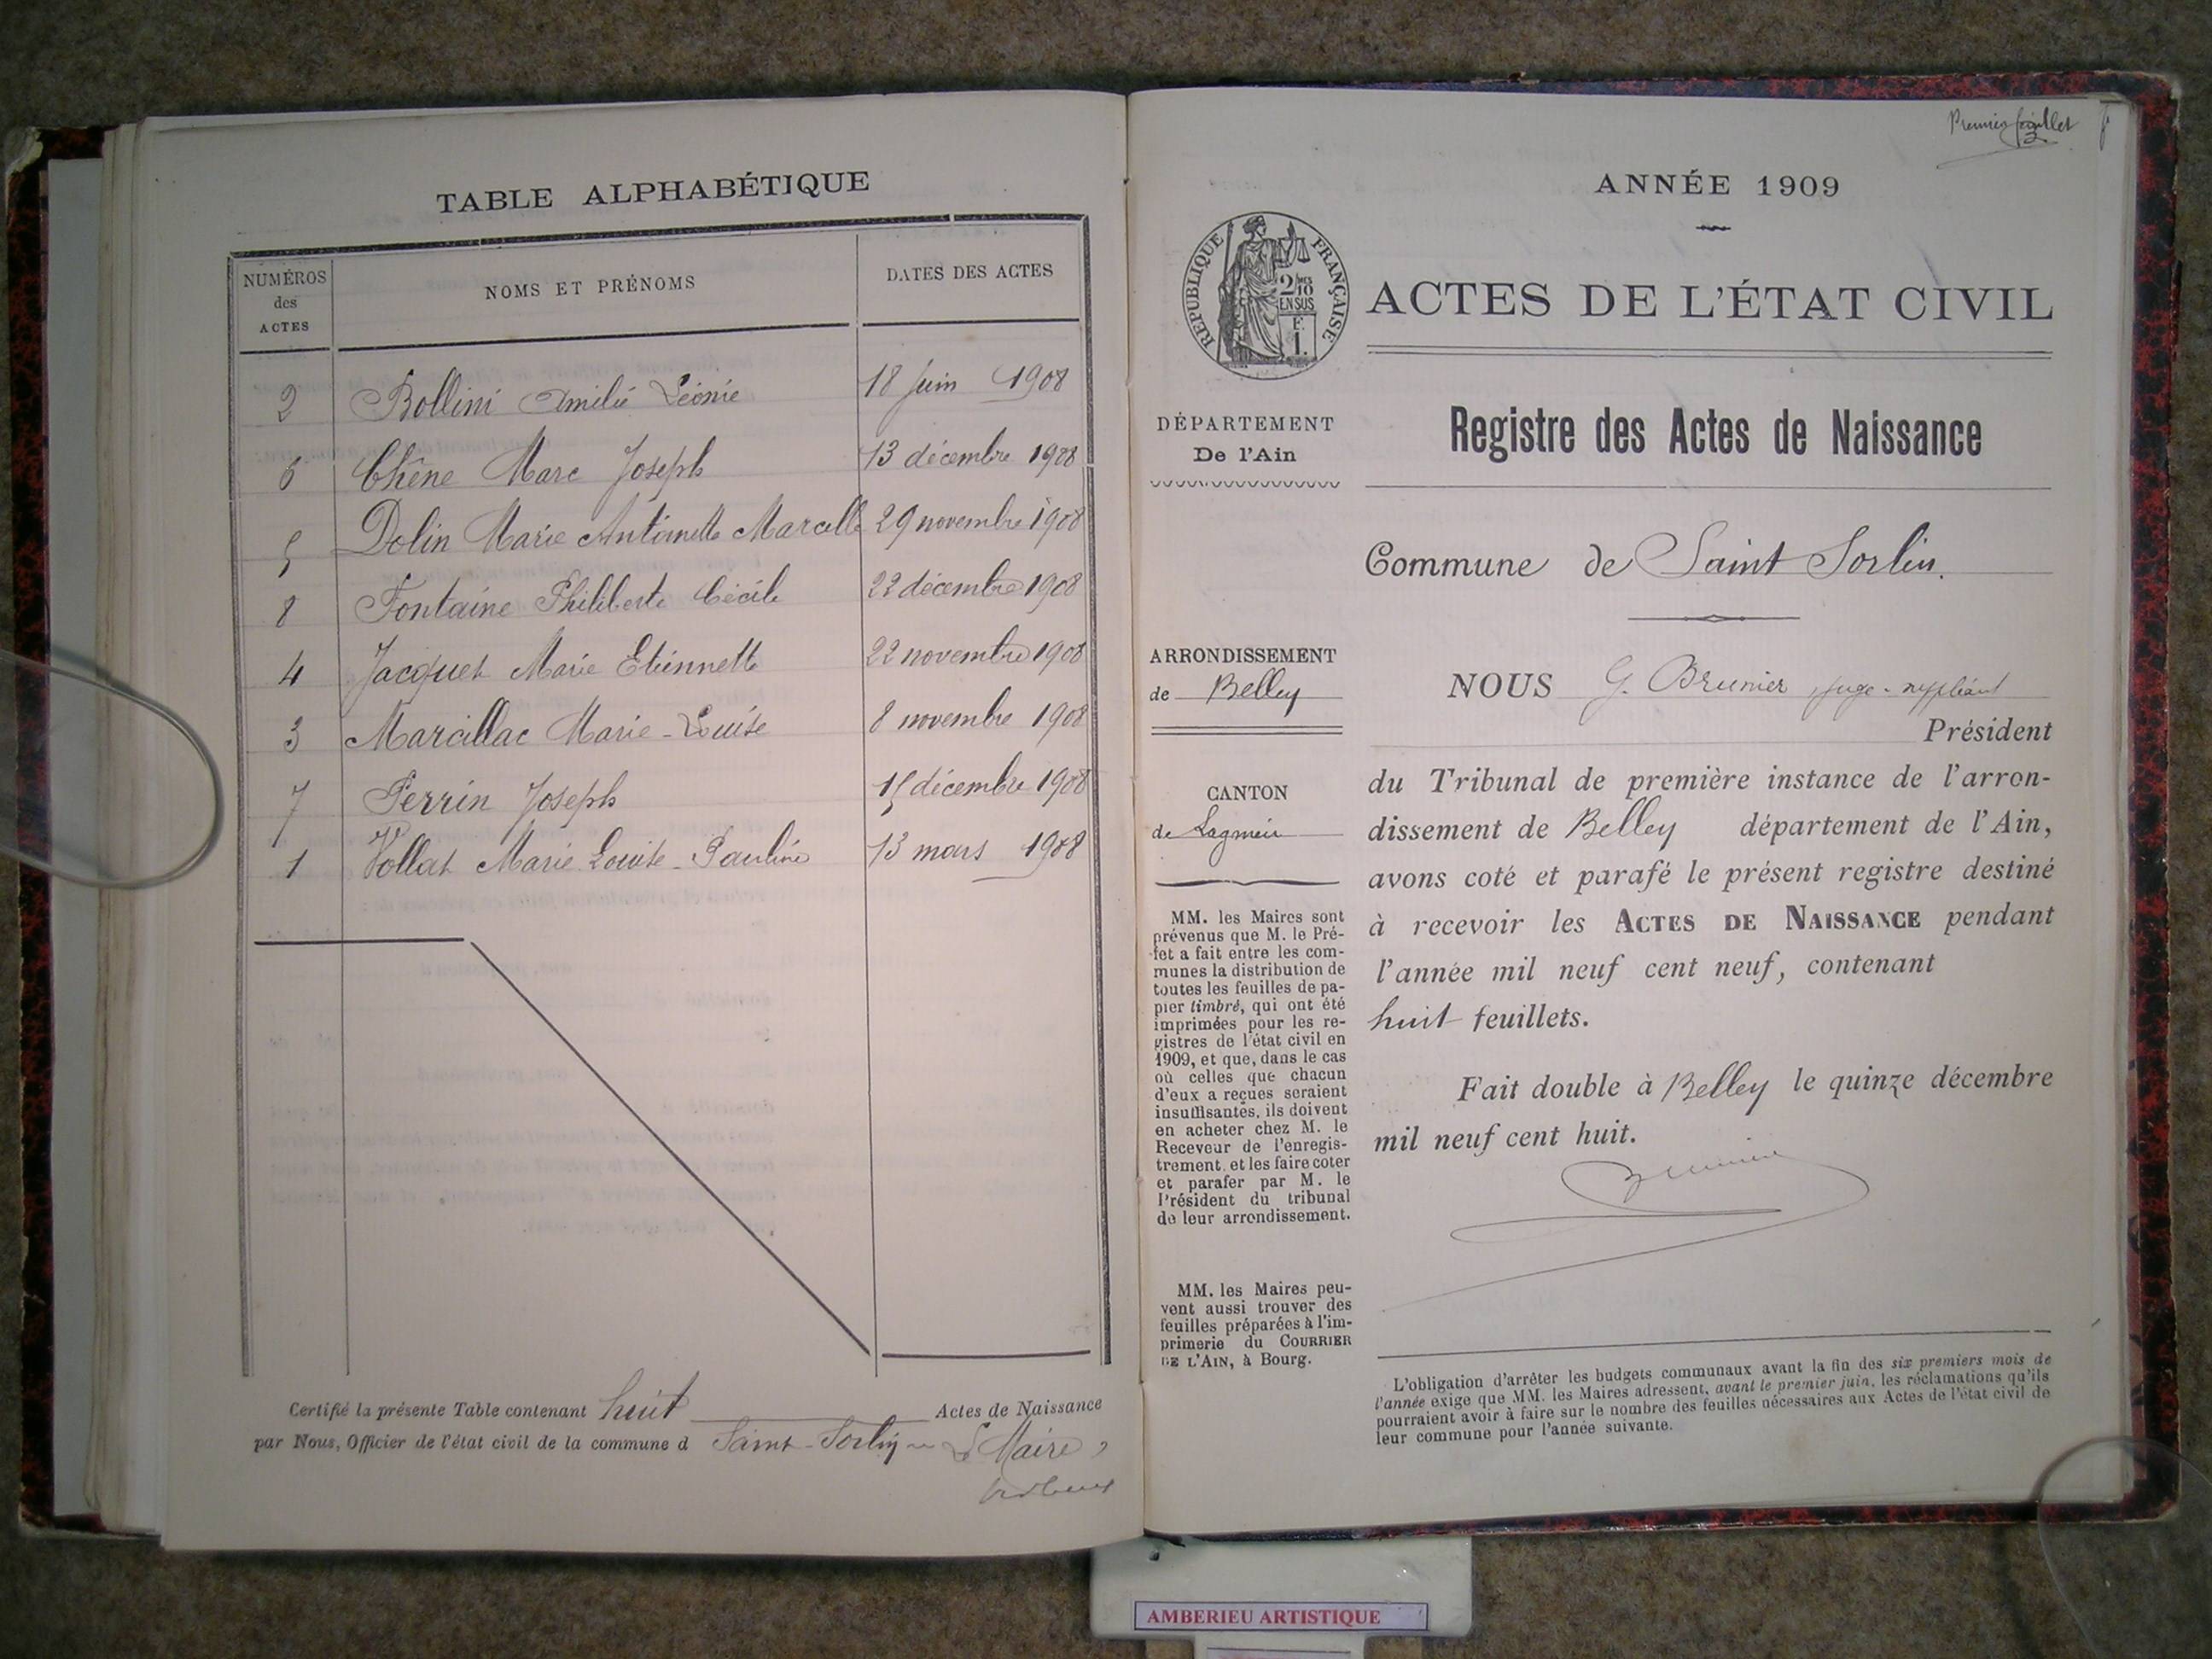 TABLE ALPHABÉTIQUE
NUMÉROS
des
ACTES
NOMS ET PRÉNOMS
DATES DES ACTES
2 Bollini Emilie Léonie 18 Juin 1908
6 Chêne Marc Joseph 13 décembre 1908
5 Dolin Marie Antoinette Marcelle 29 novembre 1908
8 Fontaine Philiberte Cécile 22 décembre 1908
4 Jacquet Marie Etiennette 22 novembre 1908
3 Marcillac Marie-Louise 8 novembre 1908
7 Perrin Joseph 15 décembre 1908
1 Vollat Marie Louise-Pauline 13 mars 1908
Certifié la présente Table contenant huit Actes de Naissance
par Nous, Officier de l'état civil de la commune d Saint-Sorlin Le Maire,
Premier feuillet
ANNÉE 1909
RÉPUBLIQUE FRANÇAISE
2 MES
10
EN SUS
F.
1.
ACTES DE L'ÉTAT CIVIL
DÉPARTEMENT
De l'Ain
Registre des Actes de Naissance
Commune de Saint Sorlin.
ARRONDISSEMENT
de Belley
CANTON
de Lagnieu
MM. les Maires sont
prévenus que M. le Pré-
fet a fait entre les com-
munes la distribution de
toutes les feuilles de pa-
pier timbré, qui ont été
imprimées pour les re-
gistres de l'état civil en
1909, et que, dans le cas
où celles que chacun
d'eux a reçues seraient
insuffisantes, ils doivent
en acheter chez M. le
Receveur de l'enregis-
trement, et les faire coter
et parafer par M. le
Président du tribunal
de leur arrondissement.
MM. les Maires peu-
vent aussi trouver des
feuilles préparées à l'im-
primerie du COURRIER
DE L'AIN, à Bourg.
NOUS G. Brunier, Juge-suppléant
Président
du Tribunal de première instance de l'arron-
dissement de Belley département de l'Ain,
avons coté et parafé le présent registre destiné
à recevoir les ACTES DE NAISSANCE pendant
l'année mil neuf cent neuf, contenant
huit feuillets.
Fait double à Belley le quinze décembre
mil neuf cent huit.
Brunier
L'obligation d'arrêter les budgets communaux avant la fin des six premiers mois de
l'année exige que MM. les Maires adressent, avant le premier juin, les réclamations qu'ils
pourraient avoir à faire sur le nombre des feuilles nécessaires aux Actes de l'état civil de
leur commune pour l'année suivante.
AMBERIEU ARTISTIQUE